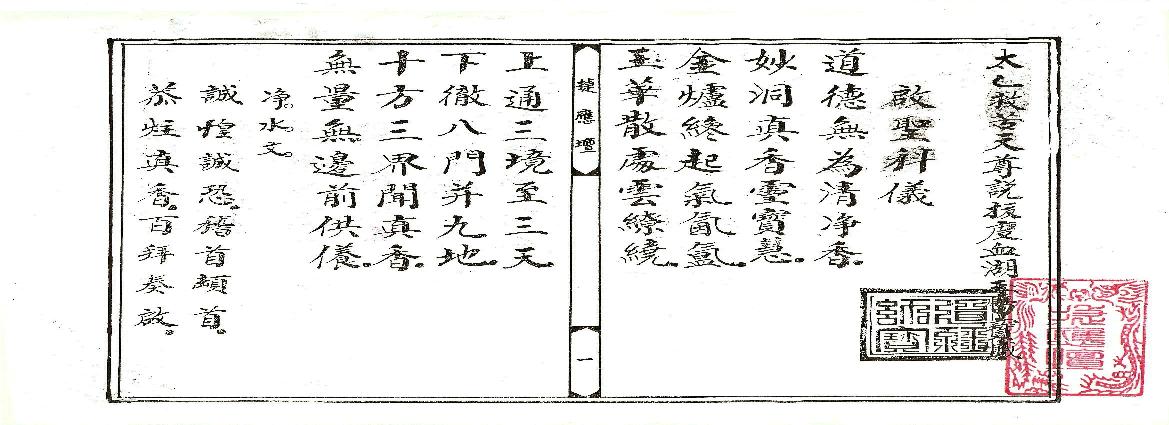 太乙救苦天尊說拔度血湖
啟聖科儀
道德無為清净香。
妙洞真香靈寶慧。
金爐纔起氣氤氳。
玉華散處雲繚繞。
捷應壇
一
上通三境至三天
下徹八門并九地。
十方三界聞真香。
無量無邊前供養。
净水文。
誠惶誠恐。稽首頓首。
恭炷真香。百拜奏啟。
道經師寶